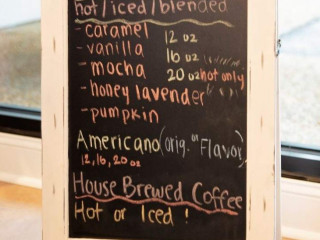 hot/iced/blended
-caramel 12 oz
-vanilla 16 oz
-mocha 20 oz hot only
-honey lavender
-pumpkin
Americano (orig. or Flavor)
12, 16, 20 oz
House Brewed Coffee
Hot or Iced !